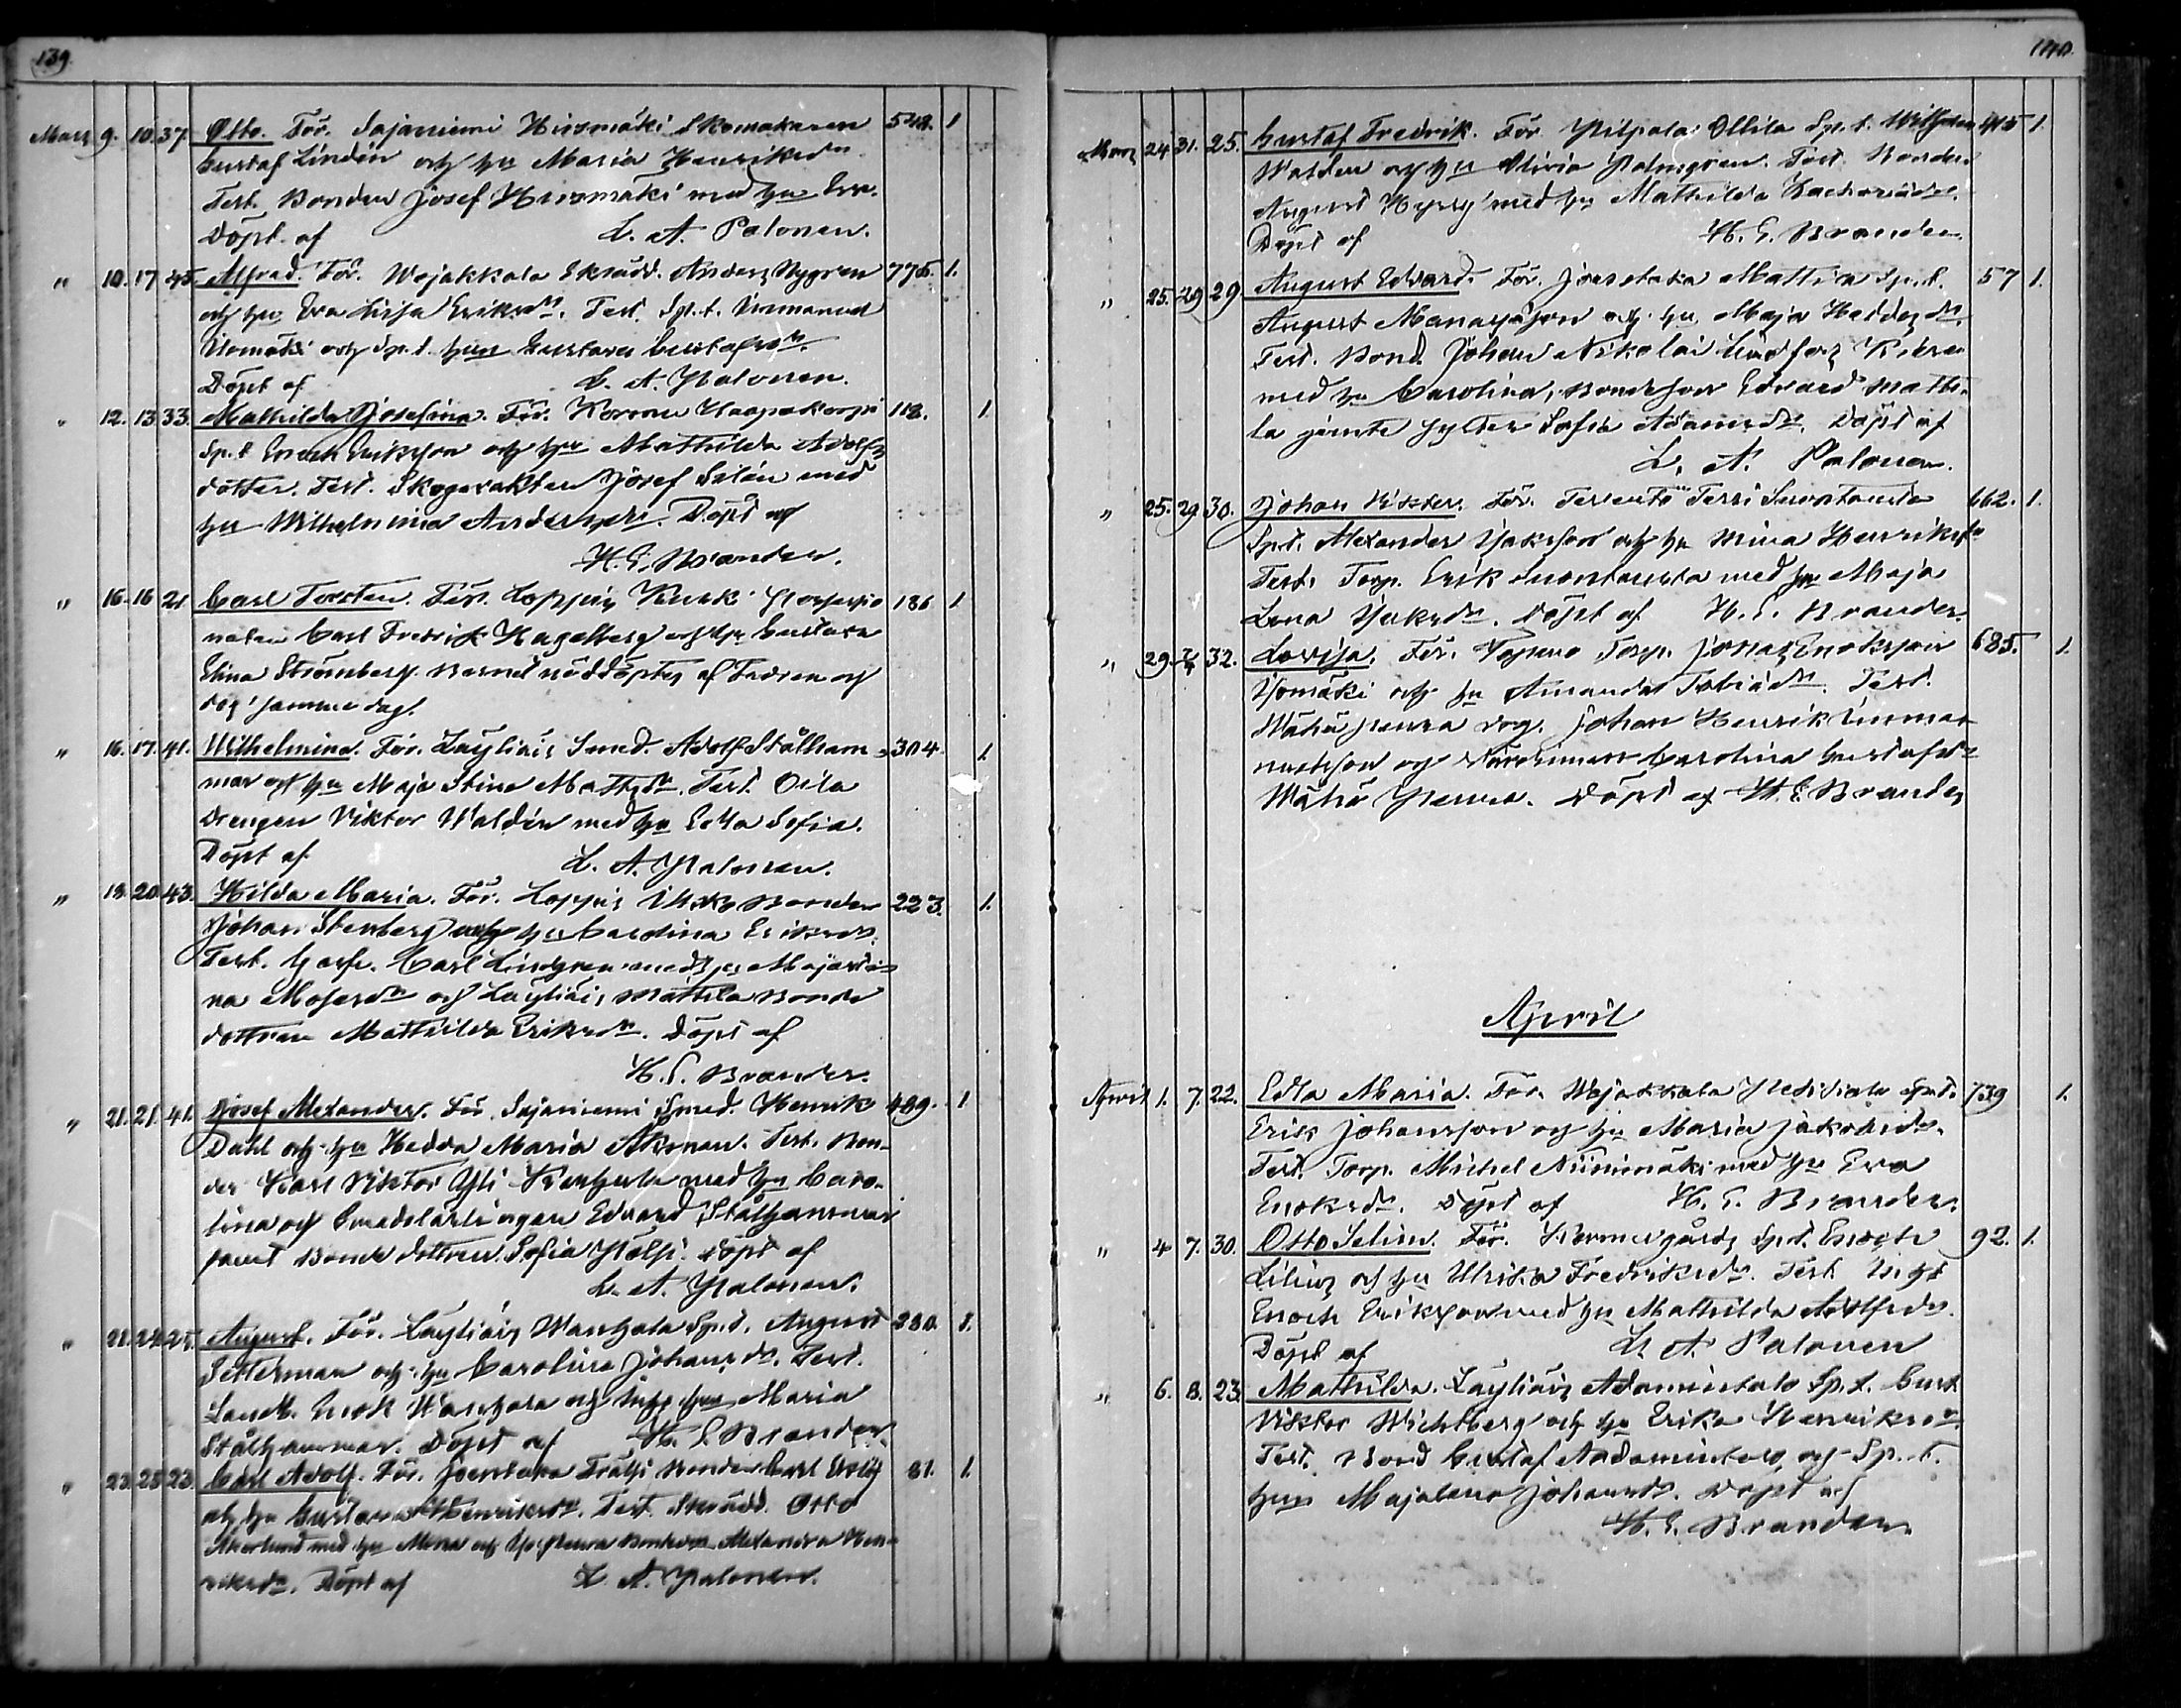 139.
Mars 9. 10. 37. Otto. För. Sajaniemi Hirsmäki Skomakaren 548. 1
Gustaf Lindén och hu Maria Henriksdr.
Test. Bonden Josef Hirsmäki med hu Eva.
Döpt af L. A. Palonen.
" 10. 17 45. Alfred. För. Wojakkala Skrädd. Anders Nygren 775. 1.
och hu Eva Lisa Eriksdr. Test. Sp.t. Immanuel
Uomäki och Sp.t. hun Gustava Gustafsdr.
Döpt af L. A. Palonen.
" 12. 13 33. Mathilda Josefina. För. Kormu Haapakorpi 118. 1.
Sp.t Enoch Eriksson och hu Mathilda Adolfs
dotter. Test. Skogvaktan Josef Silén med
hu Wilhelmina Andersdr. Döpt af
H. E. Brander.
" 16. 16 21. Carl Torsten. För. Loppis 186 1
Carl Fredrik Hagelberg och hu Gustava
Elina Strömberg. Barnet nöddöptes af Fadren och
dog samma dag.
" 16. 17. 41. Wilhelmina. För. Läyliäis Smed. Adolf Stålham- 304 1.
mar och hu Maja Stina Mattsdr. Test. Oila
Drengen Viktor Waldén med hu Edla Sofia.
Döpt af L. A. Palonen.
" 18. 20. 43. Hilda Maria. För. Loppis Bonden 223. 1.
Johan Stenberg och hu Carolina Eriksdr.
Test. Carl Lindgren med hu Maja
na Mosesdr och Läyliäis Mattila Bonde
dottren Mathilda Eriksdr. Döpt af
H. E. Brander.
" 21. 21. 41. Josef Alexander. För. Sajaniemi Smed. Henrik 489. 1
Dahl och hu Hedda Maria Åkerman. Test. Bon-
den Karl Viktor Yli med hu Caro-
lina och Smedslärlingen Edvard Stålhammar
samt Bonde dottren Sofia Döpt af
L. A. Palonen.
" 21. 24 25. August. För. Läyliäis Wanhala Sp.t. August 280. 1.
Setterman och hu Carolina Johansdr. Test.
Landb. Enok Wanhala och hu Maria
Stålhammar. Döpt af H. E. Brander.
" 23. 25 23. Carl Adolf. För. Joentaka Bonden Carl 81. 1.
och hu Gustava Henriksdr. Test. Skrädd. Otto
Åkerlund med hu Mina och Alexandra Hen-
riksdr. Döpt af L. A. Palonen.
140.
Mars 24 31. 25. Gustaf Fredrik. För. Pilpala Ollila Sp.t. Wilhelm 415 1.
Walden och hu Olivia Palmgren. Test. Bonden
August Hyrsy med hu Mathilda Zachariädr.
Döpt af H. E. Brander.
" 25. 29 29. August Edvard. För. Joentaka Mattila Sp.t. 57 1.
August Manasson och hu Maja
Test. Bond. Johan Nikolai Lindfors
med hu Carolina, Bondeson Edvard Matti-
la jemte Syster Sofia Adamsdr. Döpt af
L. A. Palonen.
" 25. 29. 30. Johan Viktor. För. Tervento Terri Suontausta 662. 1.
Sp.t. Alexander Jakosson och hu Mina Henriksdr
Test. Torp. Erik Suontausta med hu Maja
Lena Jaksdr. Döpt af H. E. Brander.
" 29. 32. Lovisa. För. Topeno Torp. Jonas Enoksson 685. 1.
Isomäki och hu Amanda Tobiädr. Test.
Wähä drg. Johan Henrik Imma-
nuelsson och Carolina Gustafsdr
Wähä Döpt af H. E. Brander
April
April 1. 7. 22. Edla Maria. För. Wojakkala Sp.t. 739 1.
Erik Johansson och hu Maria Jakobsdr.
Test. Torp. Michel Niinimäki med hu Eva
Enoksdr. Döpt af H. E. Brander.
" 4 7. 30. Otto Selim. För. Kormu gårds Sp.t. Enoch 92. 1.
Lilius och hu Ulrika Fredriksdr. Test.
Enoch Eriksson med hu Mathilda Adolfsdr.
Döpt af L. A. Palonen
" 6. 8. 23 Mathilda. Läyliäis Adamintalo Sp.t. Gust
Viktor Wichtberg och hu Erika Henriksdr.
Test. Bond Gustaf Adamintalo och Sp.t.
hun Majalena Johansdr. Döpt af
H. E. Brander